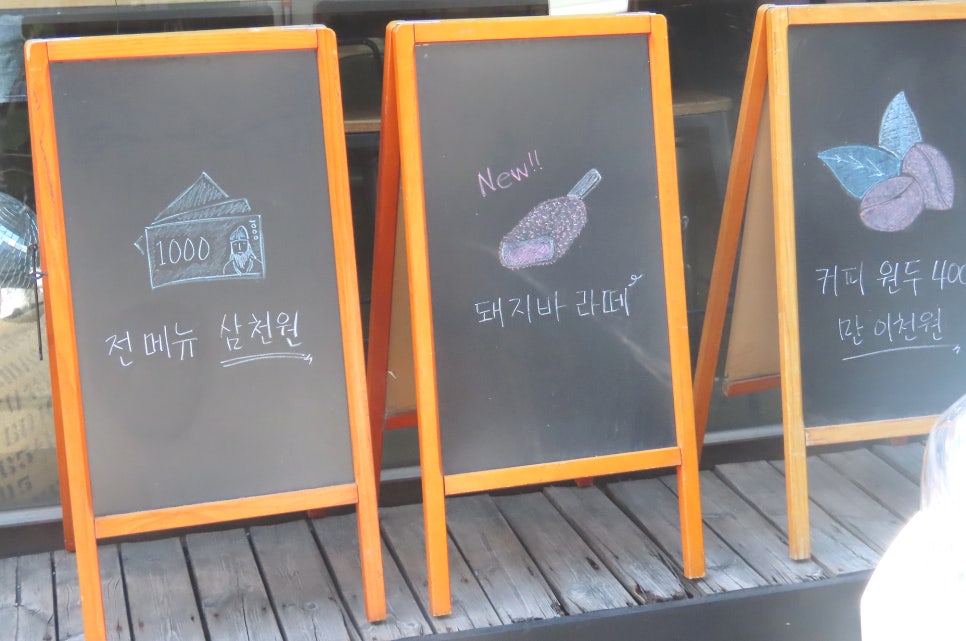 1000
전메뉴 삼천원
New!!
돼지바 라떼
커피 원두 400
만 이천원